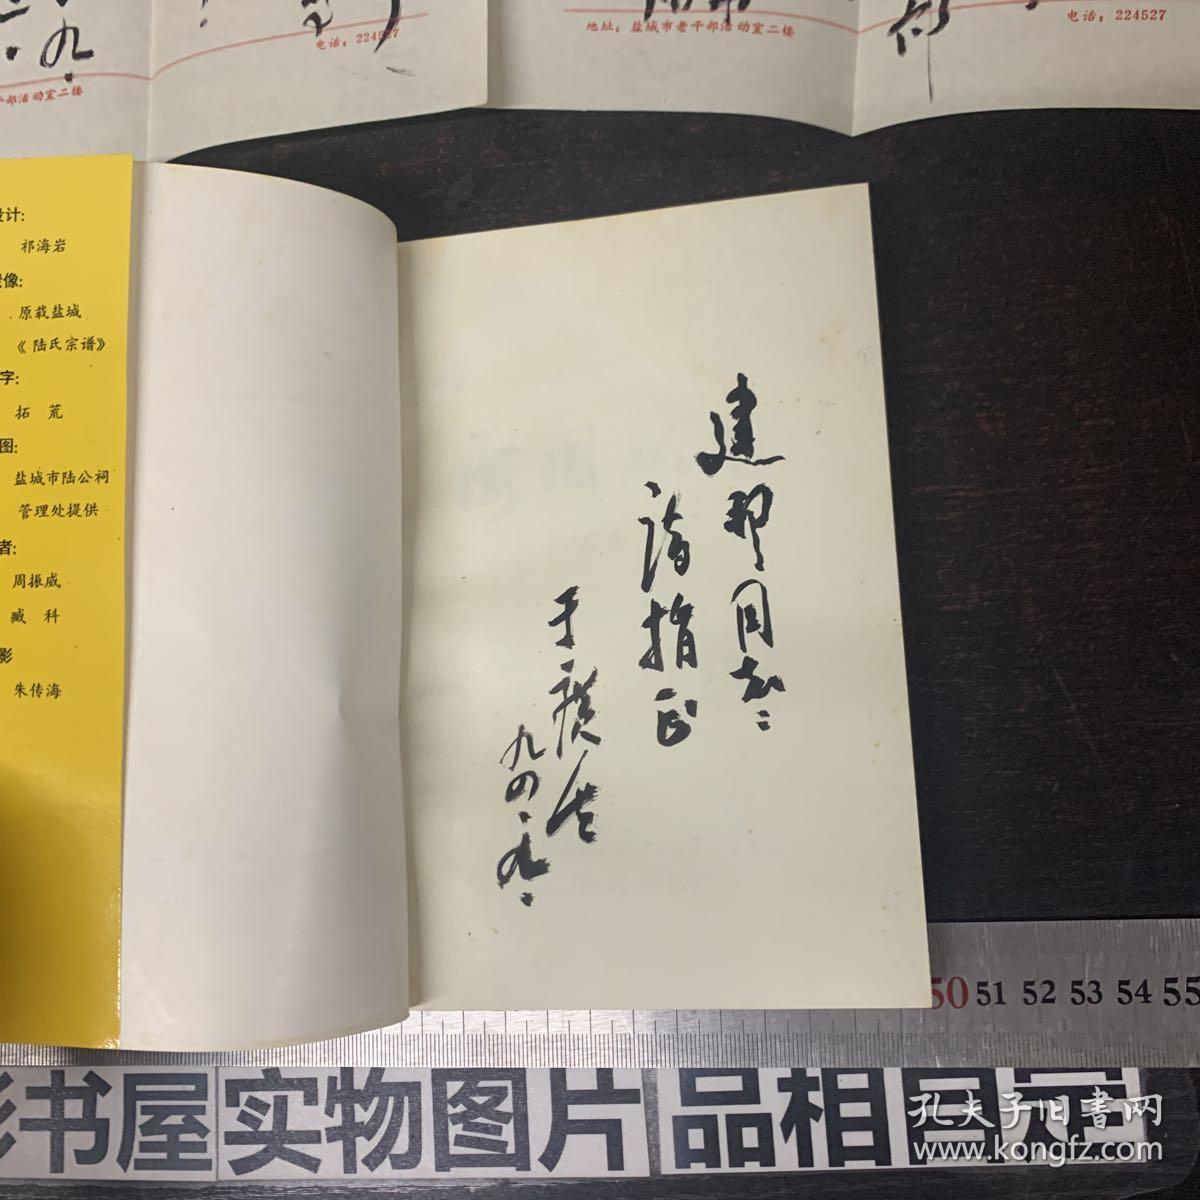 九.
电话：224527
干部活动室二楼
地址：盐城市老干部活动室二楼
电话：224527
设计:
祁海岩
像:
原载盐城
《陆氏宗谱》
字:
拓 荒
图:
盐城市陆公祠
管理处提供
者:
周振威
臧 科
影
朱传海
建 同志:
请指正
于
九四.九.
50 51 52 53 54 55
书屋实物图片 品相自定
孔夫子旧书网
www.kongfz.com